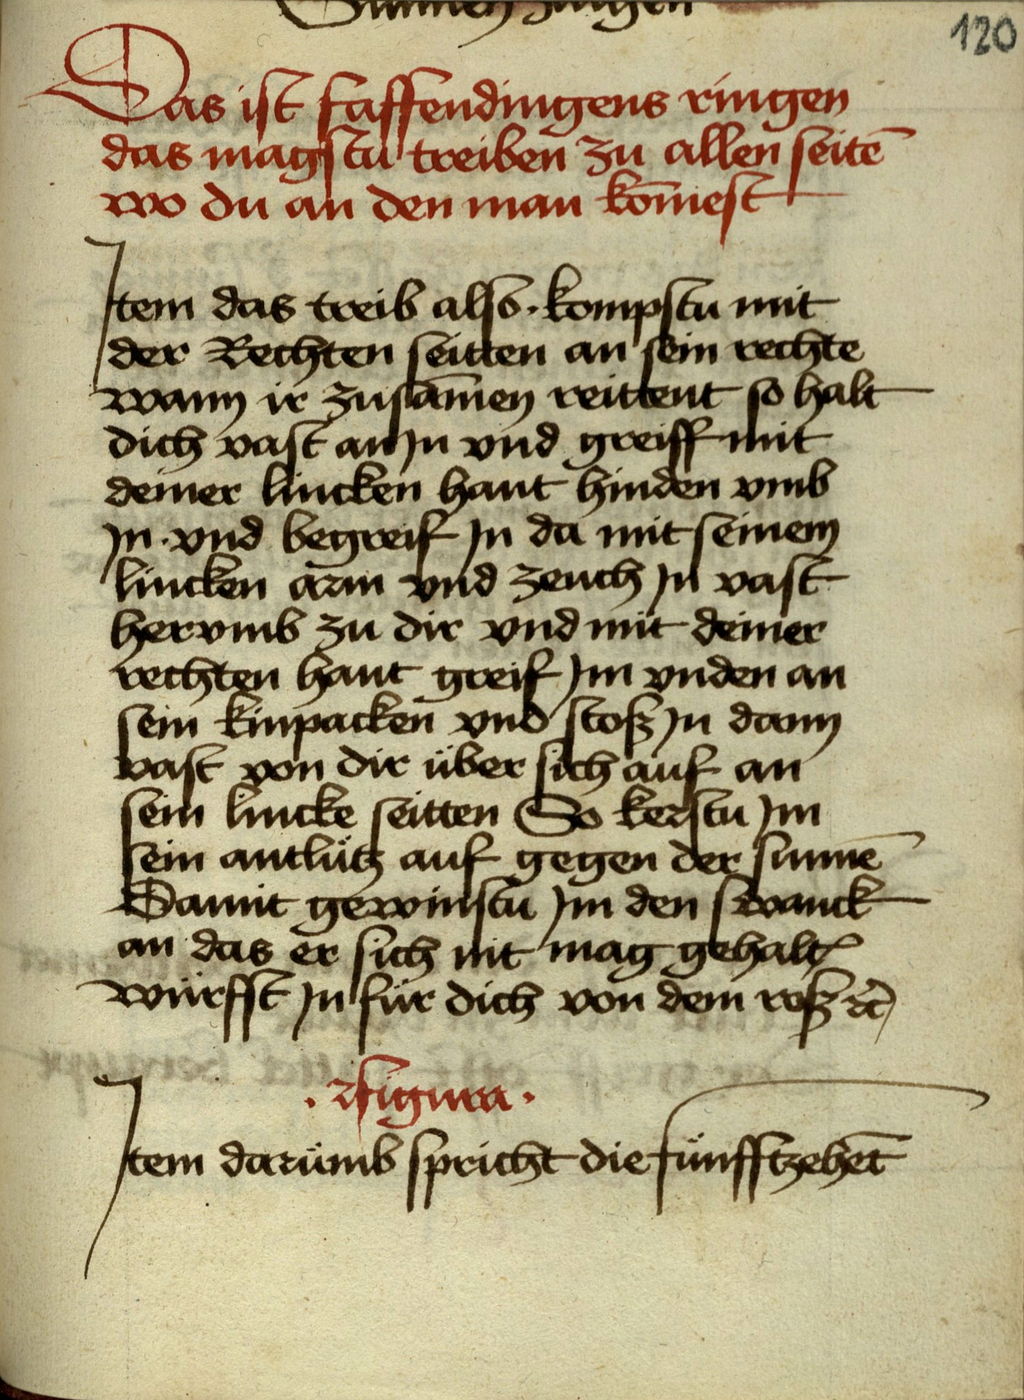 Sunnen zaigen
120
Das ist fassendingens ringen
das magstu treiben zu allen seitē
wo du an den man kōmest
Jtem das treib also · kompstu mit
der Rechten seitten an sein rechte
wann ir zusāmen reittent so halt
dich vast an Jn vnd greiff mit
deiner lincken hant hinden vmb
Jn · vnd begreif Jn da mit seinem
lincken arm vnd zeuch Jn vast
hervmb zu dir vnd mit deiner
rechten hant greif Jm vnden an
sein kinpacken vnd stosz Jn dann
vast von dir über sich auf an
sein lincke seitten So kerstu Jm
sein antlütz auf gegen der sunnē
Damit gewinstu Jm den swanck
an das er sich nit mag gehalt
würfft Jn für dich von dem rosz ꝛc
· figura ·
Jtem darümb spricht die fünfftzehēt